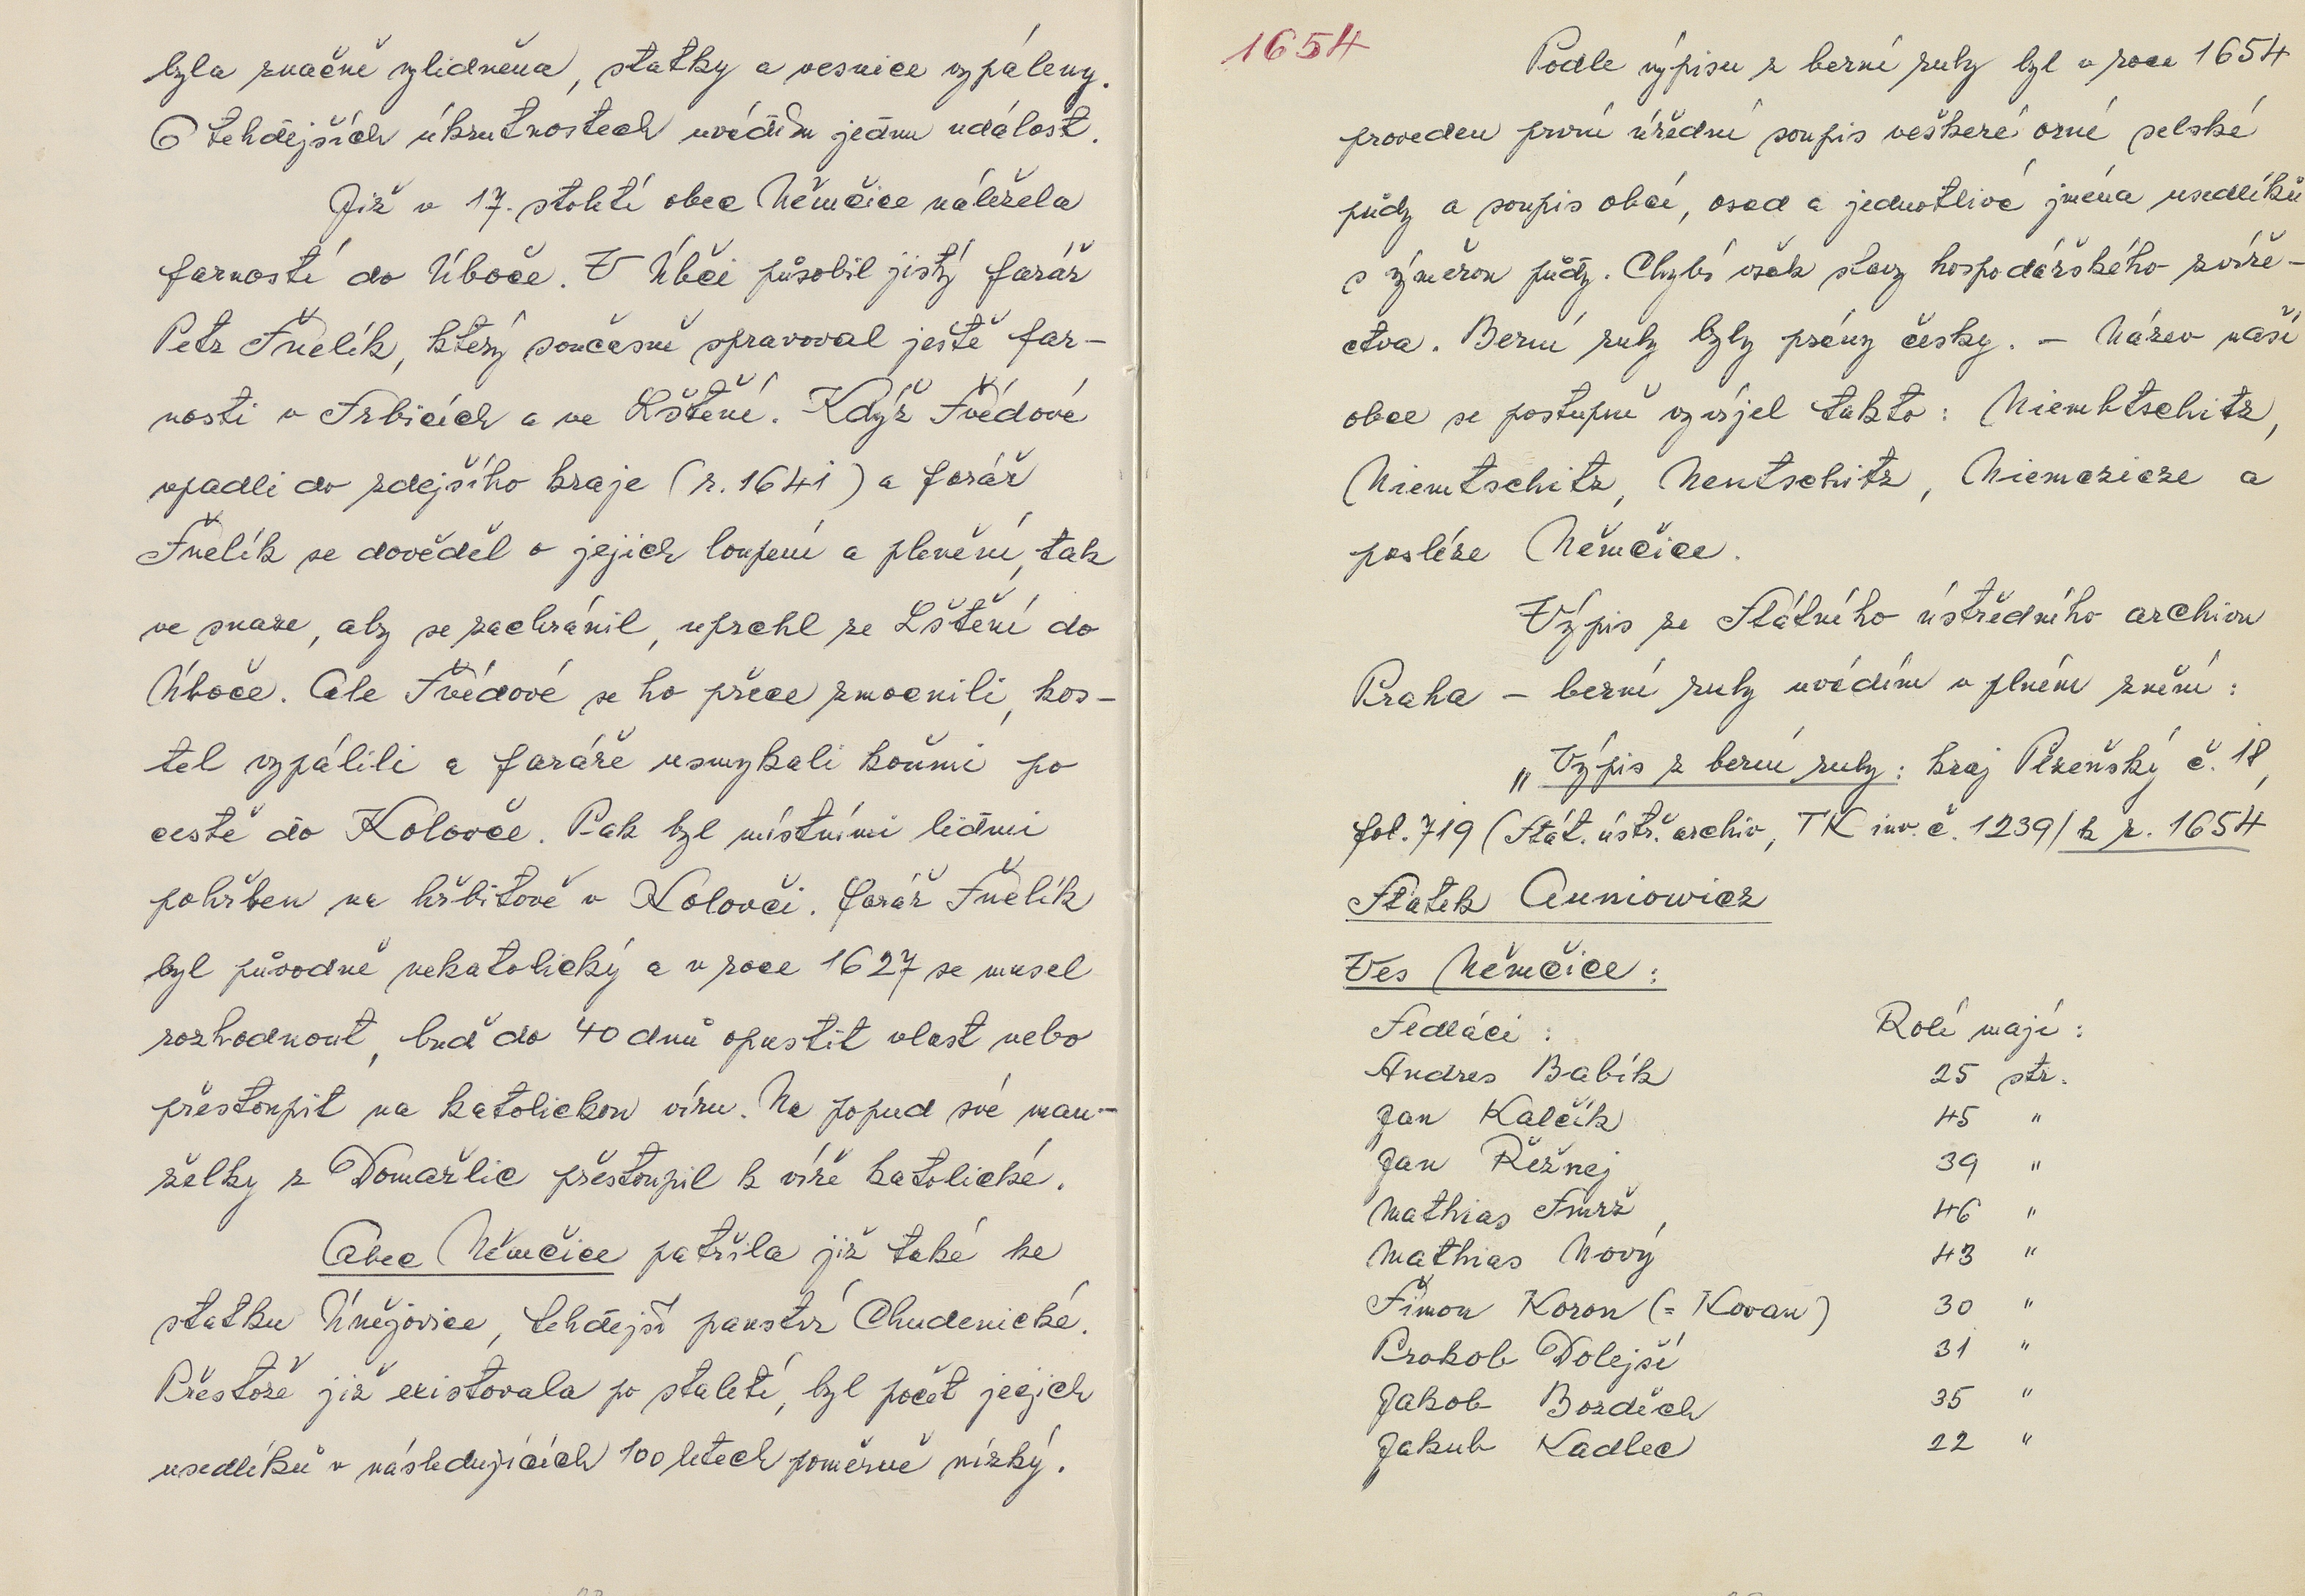 byla značně vylidněna, statky a vesnice vypáleny.
O tehdejších ukrutnostech uvádím jednu událost.
Již v 17. století obec Němčice náležela
farností do Úboče. V Úboči působil jistý farář
Petr Šnelík, který současně spravoval ještě far-
nosti v Srbicích a ve Lštění. Když Švédové
vpadli do zdejšího kraje (r. 1641) a farář
Šnelík se dověděl o jejich loupení a plenění, tak
ve snaze, aby se zachránil, uprchl ze Lštění do
Úboče. Ale Švédové se ho přece zmocnili, kos-
tel vypálili a faráře usmykali koňmi po
cestě do Koloveče. Pak byl místními lidmi
pohřben na hřbitově v Kolovči. Farář Šnelík
byl původně nekatolický a v roce 1627 se musel
rozhodnout, buď do 40 dnů opustit vlast nebo
přestoupit na katolickou víru. Na popud své man-
želky z Domažlic přestoupil k víře katolické.
Obec Němčice patřila již také ke
statku Úněјovice, tehdejší panství Chudenické.
Přestože již existovala po staletí, byl počet jejich
usedlíků v následujících 100 letech poměrně nízký.
1654
Podle výpisu z berní ruly byl v roce 1654
proveden první úřední soupis veškeré orné selské
půdy a soupis obcí, osad a jednotlivé jména usedlíků
s výměrou půdy. Chybí však stavy hospodářského zvíře-
ctva. Berní ruly byly psány česky. – Název naší
obce se postupně vyvíjel takto: Niembtschitz,
Niemtschitz, Nentschitz, Niemczicze a
posléze Němčice.
Výpis ze Státního ústředního archivu
Praha – berní ruly uvádím v plném znění:
„Výpis z berní ruly: kraj Plzeňský č. 18,
fol. 719 (Stát. ústř. archiv, TK inv. č. 1239/ k r. 1654
Statek Auniowicz
Ves Němčice:
Sedláci: Rolí mají:
Andres Babík 25 str.
Jan Kalčík 45 "
Jan Řežnej 39 "
Mathias Smrž, 46 "
Mathias Nový 43 "
Šimon Koron (= Kovan) 30 "
Prokob Dolejší 31 "
Jakob Bozděch 35 "
Jakub Kadlec 22 "